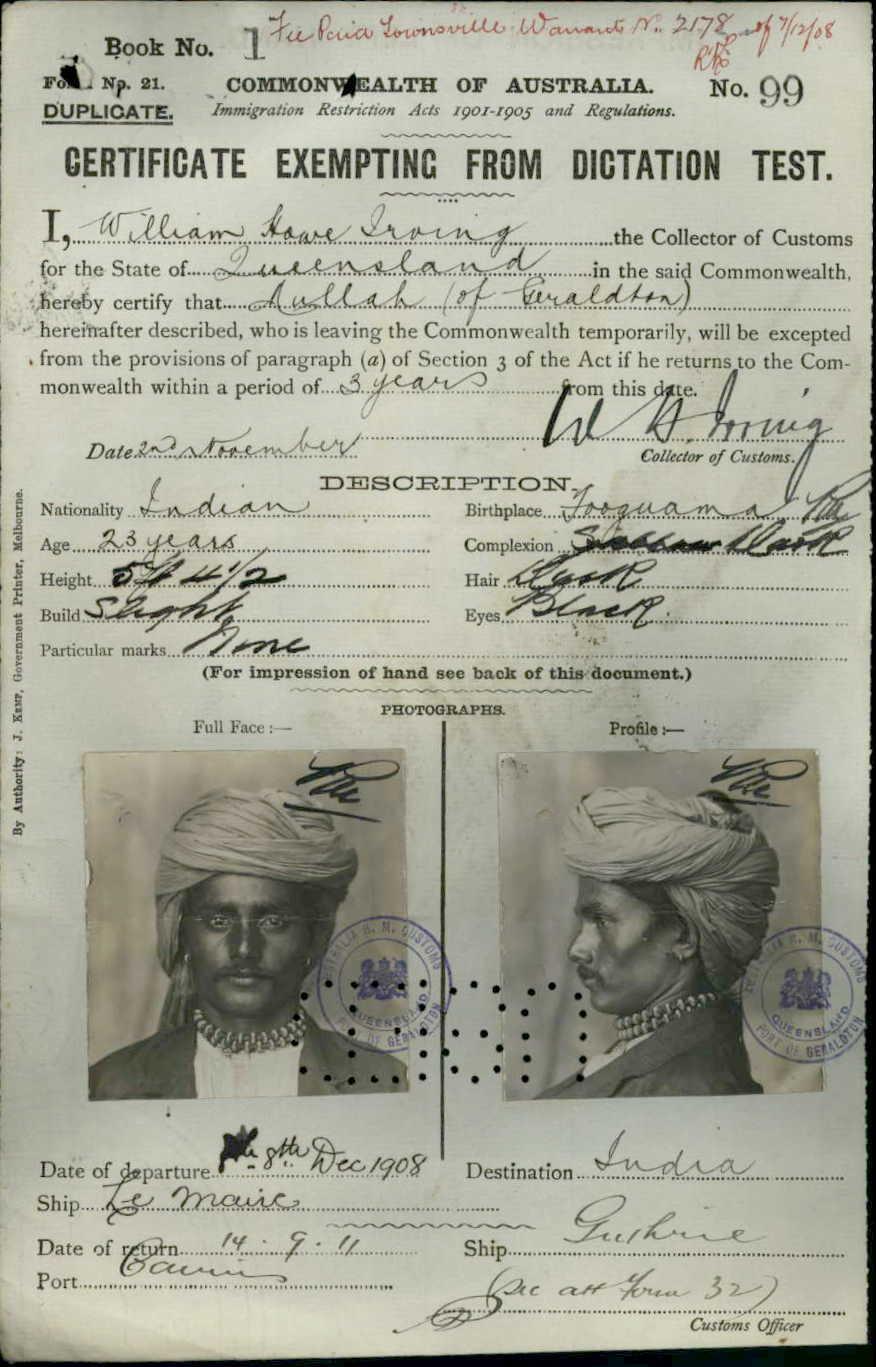 Fee Paid Townsville Warrant No. 2178 of 7/12/08
Book No. 1
Form No. 21.
COMMONWEALTH OF AUSTRALIA.
No. 99
DUPLICATE.
Immigration Restriction Acts 1901-1905 and Regulations.
CERTIFICATE EXEMPTING FROM DICTATION TEST.
I, William Howe Irving the Collector of Customs
for the State of Queensland in the said Commonwealth,
hereby certify that Aullah (of Geraldton)
hereinafter described, who is leaving the Commonwealth temporarily, will be excepted
from the provisions of paragraph (a) of Section 3 of the Act if he returns to the Com-
monwealth within a period of 3 years from this date.
W H Irving
Date 2nd November
Collector of Customs.
DESCRIPTION.
Nationality Indian
Birthplace
Age 23 years
Complexion Dark
Height 5ft 4 1/2
Hair Dark
Build Slight
Eyes Black.
Particular marks None
(For impression of hand see back of this document.)
PHOTOGRAPHS.
Full Face :—
Profile :—
AUSTRALIA H. M. CUSTOMS
QUEENSLAND
PORT OF GERALDTON
AUSTRALIA H. M. CUSTOMS
QUEENSLAND
PORT OF GERALDTON
Date of departure 8th Dec 1908
Destination India
Ship Le Maire
Date of return 14 . 9 . 11
Ship Guthrie
Port Cairns
(See att Form 32)
Customs Officer
By Authority: J. KEMP, Government Printer, Melbourne.